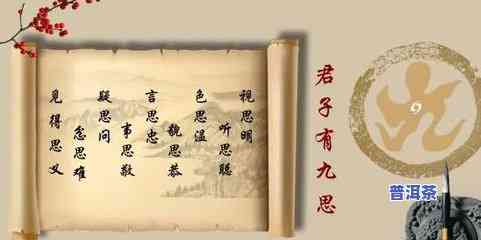 君子有九思
視思明
听思聪
色思温
貌思恭
言思忠
事思敬
疑思问
忿思难
见得思义
普洱茶